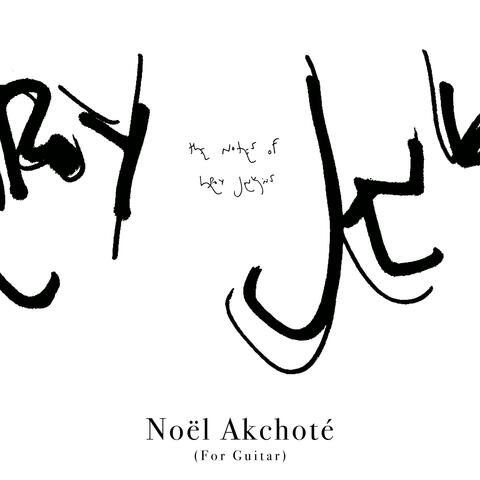 ROY JEN
the Notes of
LeROY JENKINS
Noël Akchoté
(For Guitar)